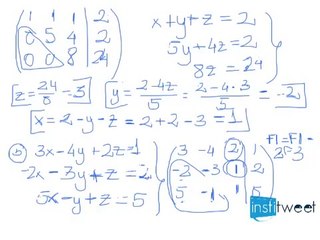 1 1 1 | 2
0 5 4 | 2
0 0 8 | 24
x+y+z=2
5y+4z=2
8z=24
z=24/8=3
y=2-4z/5=2-4·3/5=-2
x=2-y-z=2+2-3=1
b) 3x-4y+2z=1
-2x-3y+z=2
5x-y+z=5
3 -4 2 | 1
-2 -3 1 | 2
5 -1 1 | 5
F1=F1-
institweet